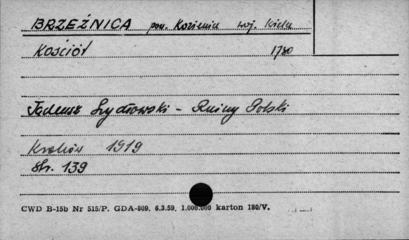 BRZEŹNICA pow. Kozienice woj. Kielce
Kościół 1780
Tadeusz Szydłowski - Ruiny Polski
Kraków 1919
Str. 139
CWD B-15b Nr 515/P. GDA-809. 6.3.59. 1.000.000 karton 180/V.